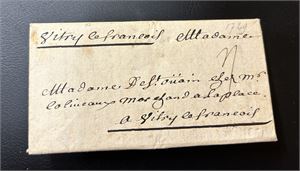 Vitry le francois Madame
Madame De St Oüain chez mr
Colineaux marchand a la place
a Vitry le francois